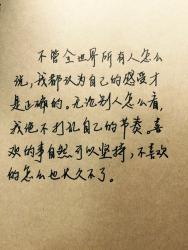 不管全世界所有人怎么
说，我都认为自己的感受才
是正确的。无论别人怎么看，
我绝不打乱自己的节奏。喜
欢的事自然可以坚持，不喜欢
的怎么也长久不了。